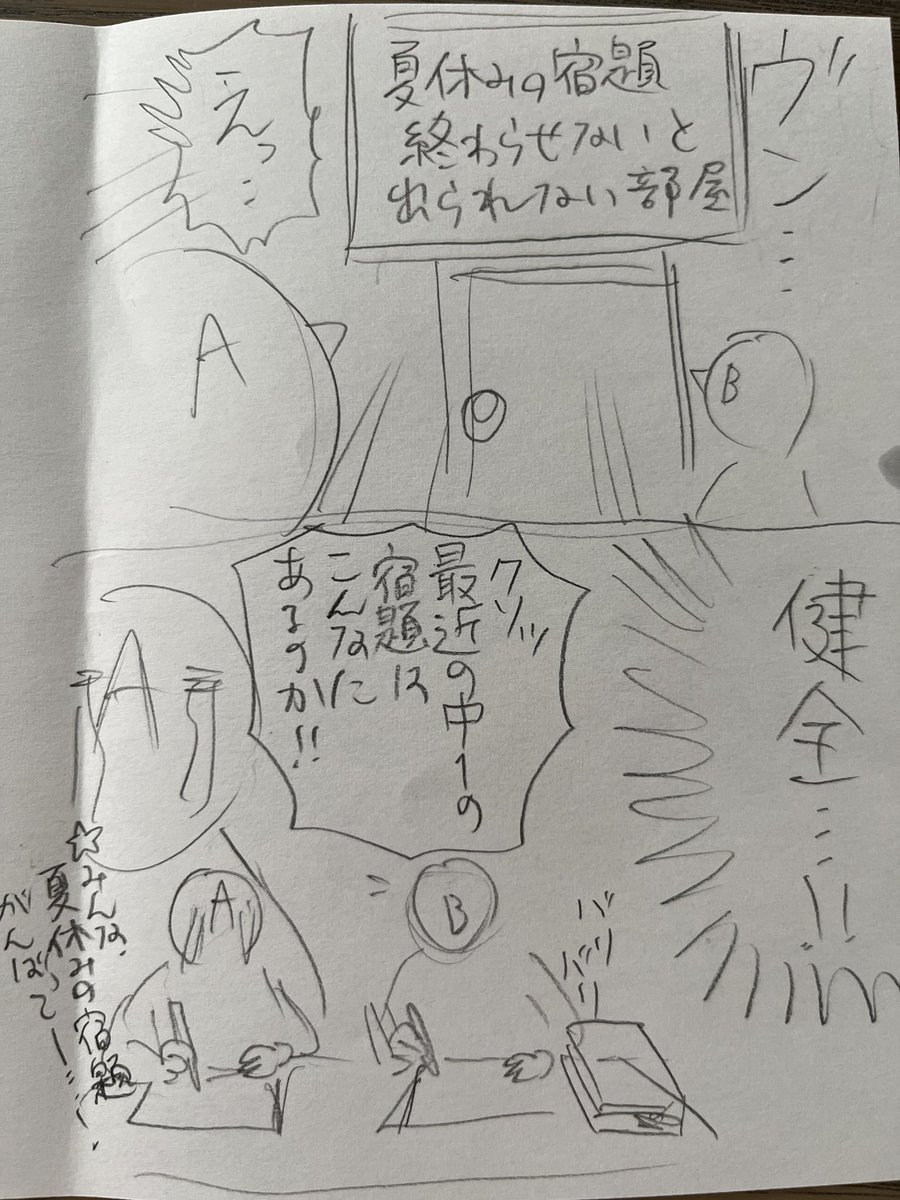 ヴン…
夏休みの宿題
終わらせないと
出られない部屋
えっ
B
A
健全…!!
クソッ
最近の中1の
宿題は
こんなに
あるのか!!
A
バ
バリ
バリ
B
A
☆みんな、
夏休みの宿題
がんばってー!